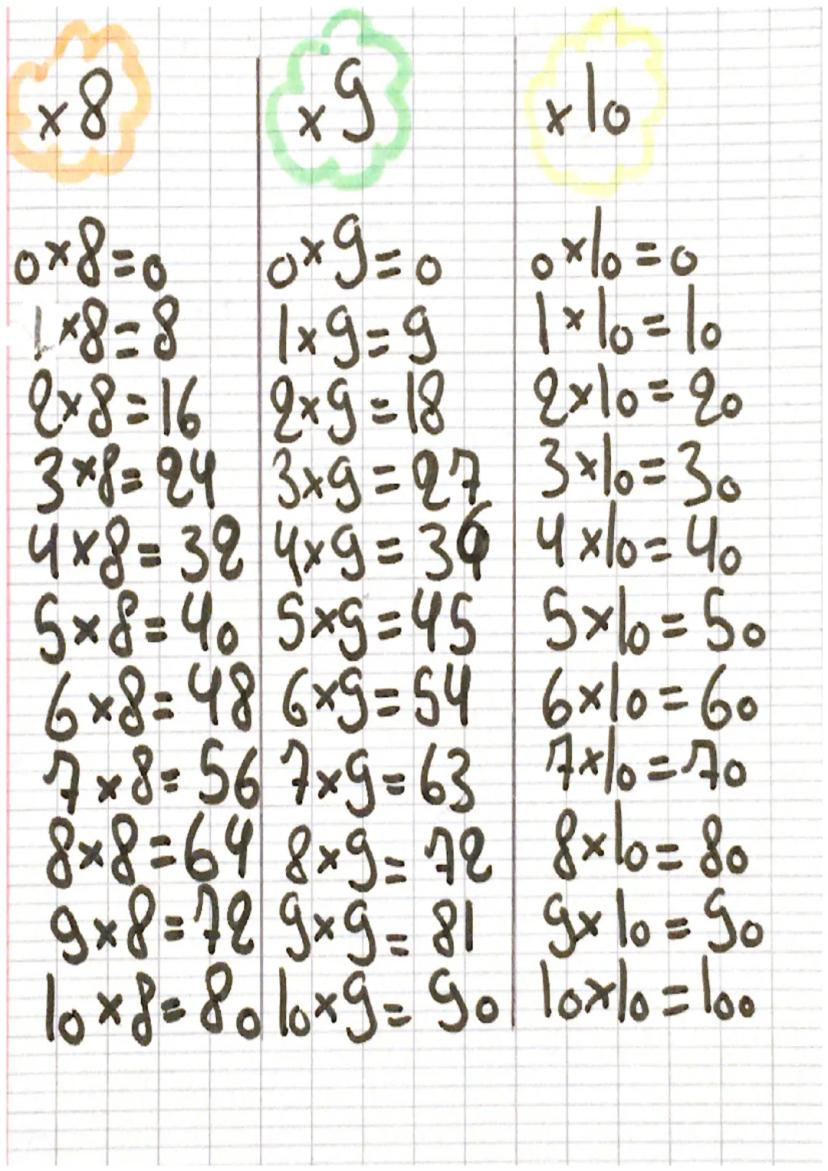 x 8
0x8=0
1x8=8
2x8=16
3x8=24
4x8=32
5x8=40
6x8=48
7x8=56
8x8=64
9x8=72
10x8=80
x 9
0x9=0
1x9=9
2x9=18
3x9=27
4x9=36
5x9=45
6x9=54
7x9=63
8x9=72
9x9=81
10x9=90
x 10
0x10=0
1x10=10
2x10=20
3x10=30
4x10=40
5x10=50
6x10=60
7x10=70
8x10=80
9x10=90
10x10=100